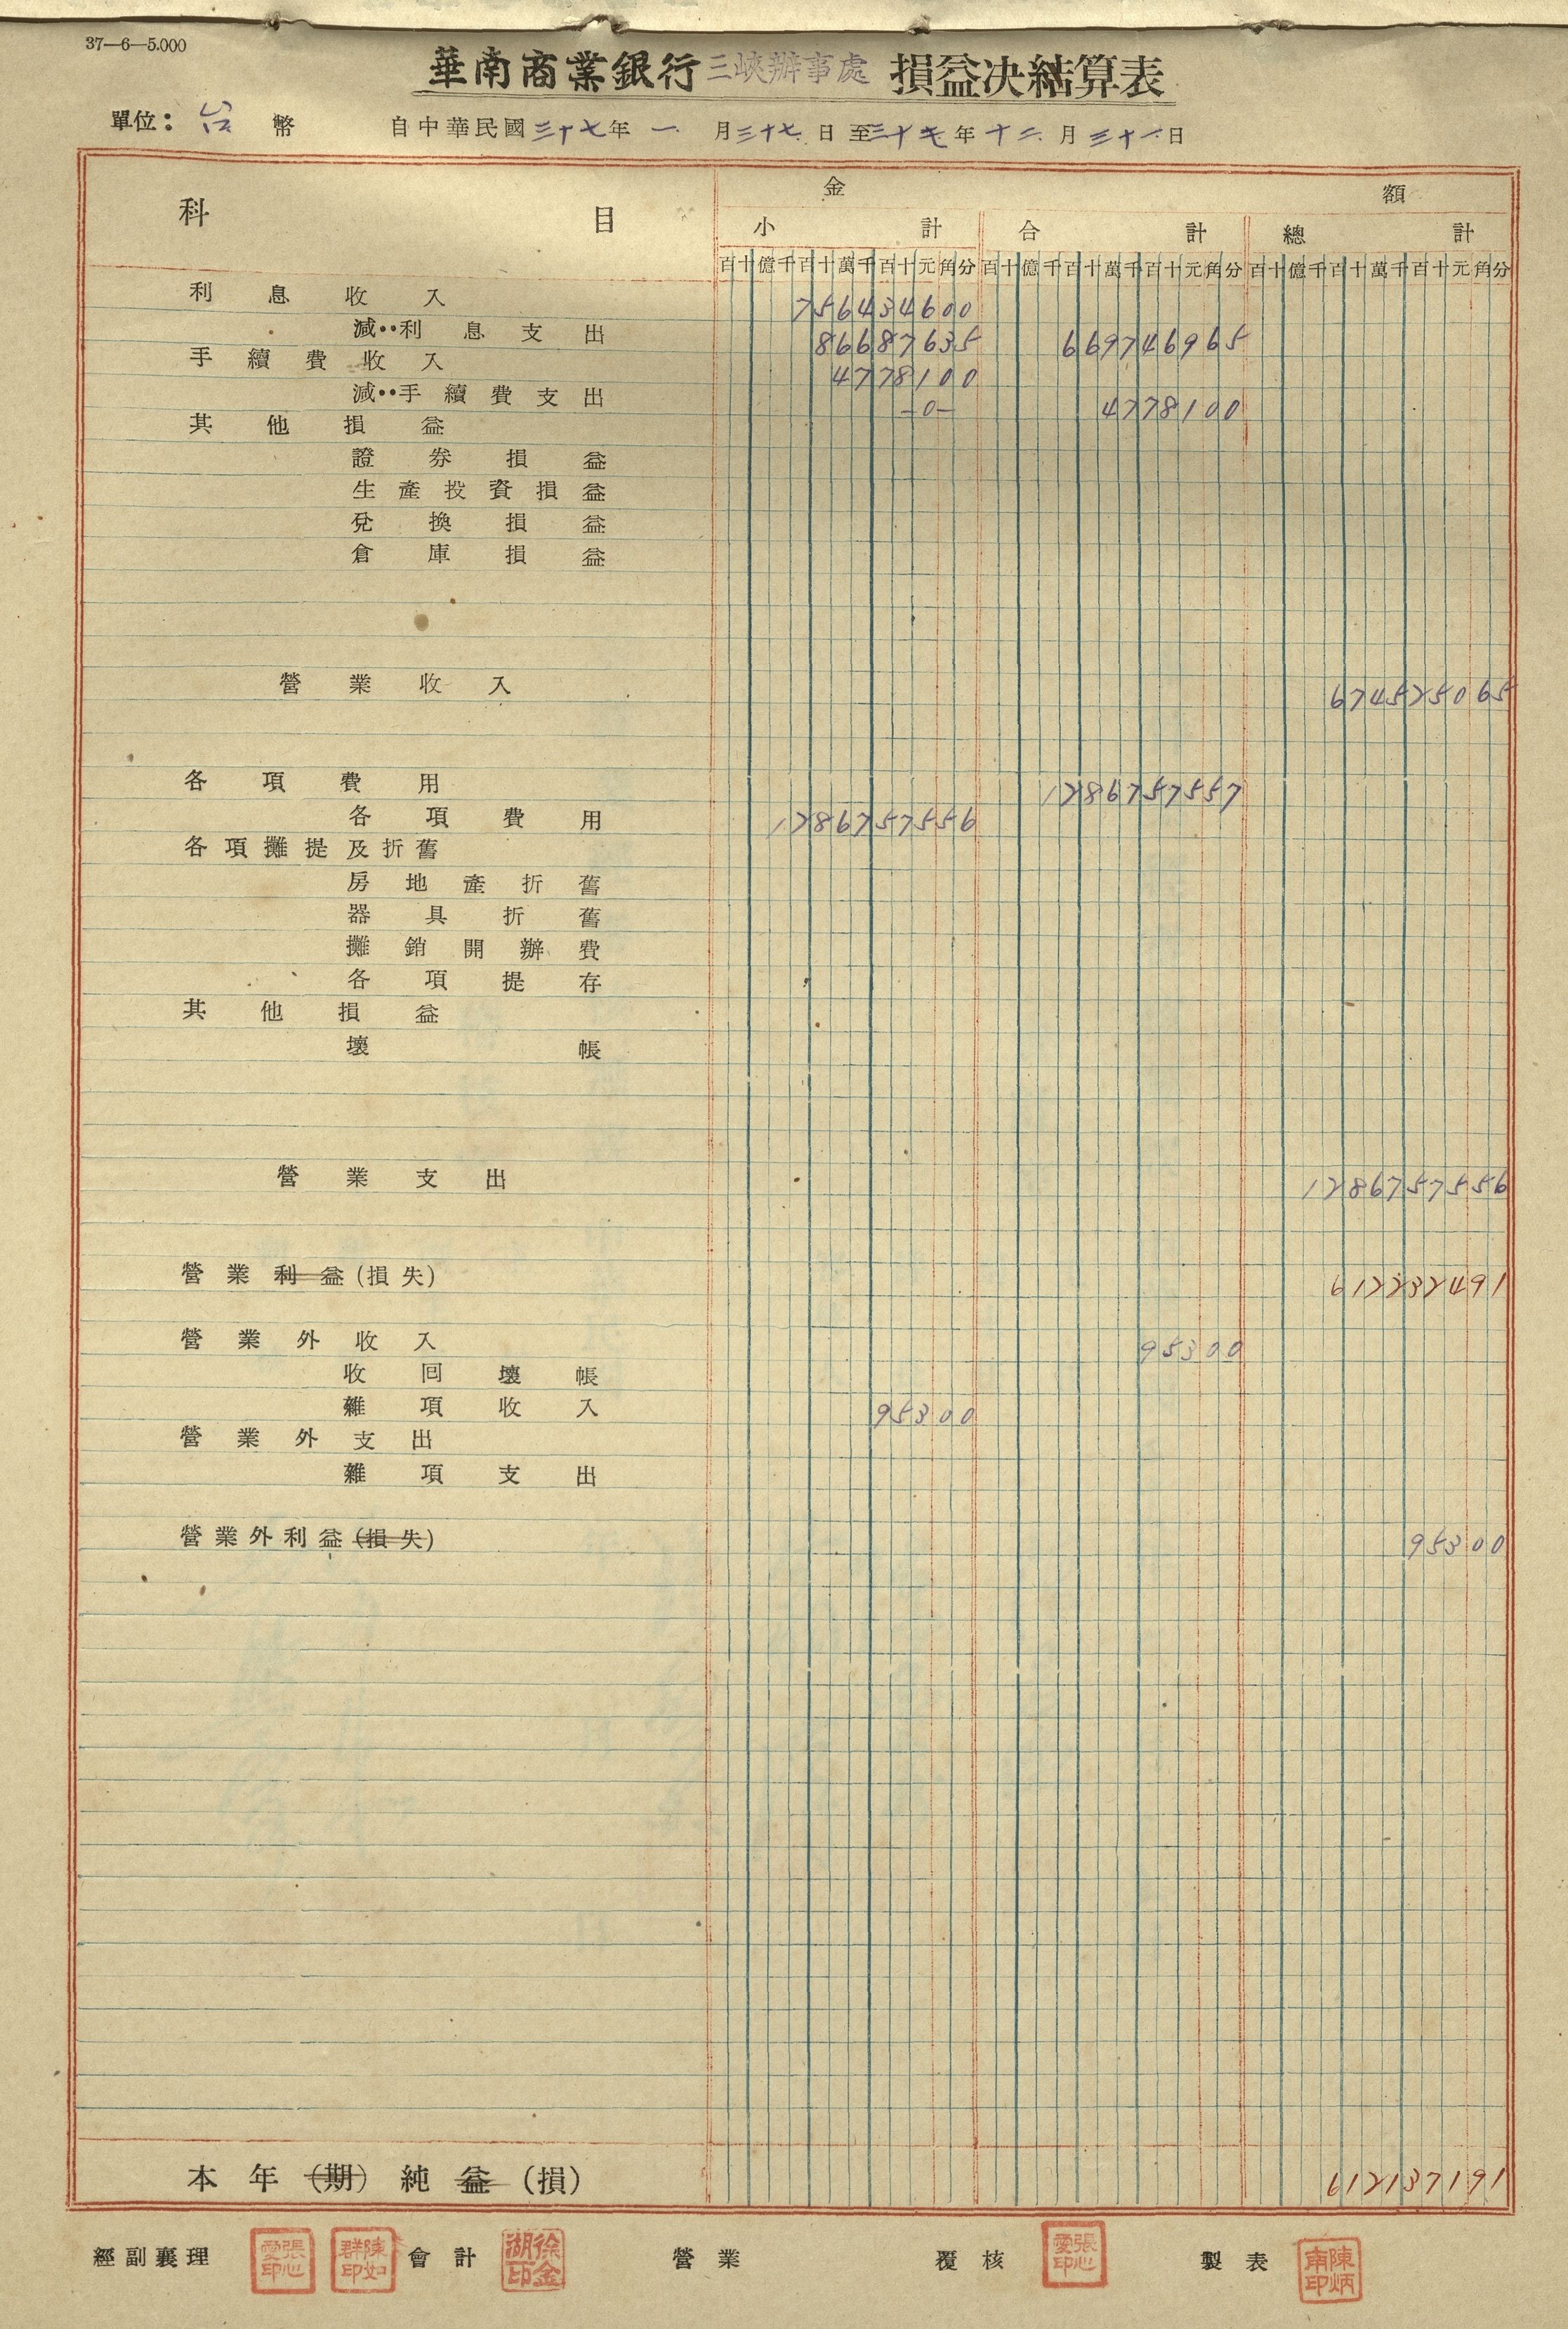 37—6—5.000
華南商業銀行三峽辦事處 損益決結算表
單位：台幣 自中華民國三十七年一月三十七日至三十七年十二月三十一日
科目 金額
小計 合計 總計
百十億千百十萬千百十元角分 百十億千百十萬千百十元角分 百十億千百十萬千百十元角分
利息收入 756434600
減‥利息支出 86687635 669746965
手續費收入 4778100
減‥手續費支出 -0- 4778100
其他損益
證券損益
生產投資損益
兌換損益
倉庫損益
營業收入 674525065
各項費用 1286757557
各項費用 1286757556
各項攤提及折舊
房地產折舊
器具折舊
攤銷開辦費
各項提存
其他損益
壞帳
營業支出 1286757556
營業利益(損失) 612232491
營業外收入 95300
收回壞帳
雜項收入 95300
營業外支出
雜項支出
營業外利益(損失) 95300
本年(期)純益(損) 612137191
經副襄理 張心愛印 陳如群印 會計 徐金湖印 營業 覆核 張心愛印 製表 陳炳南印